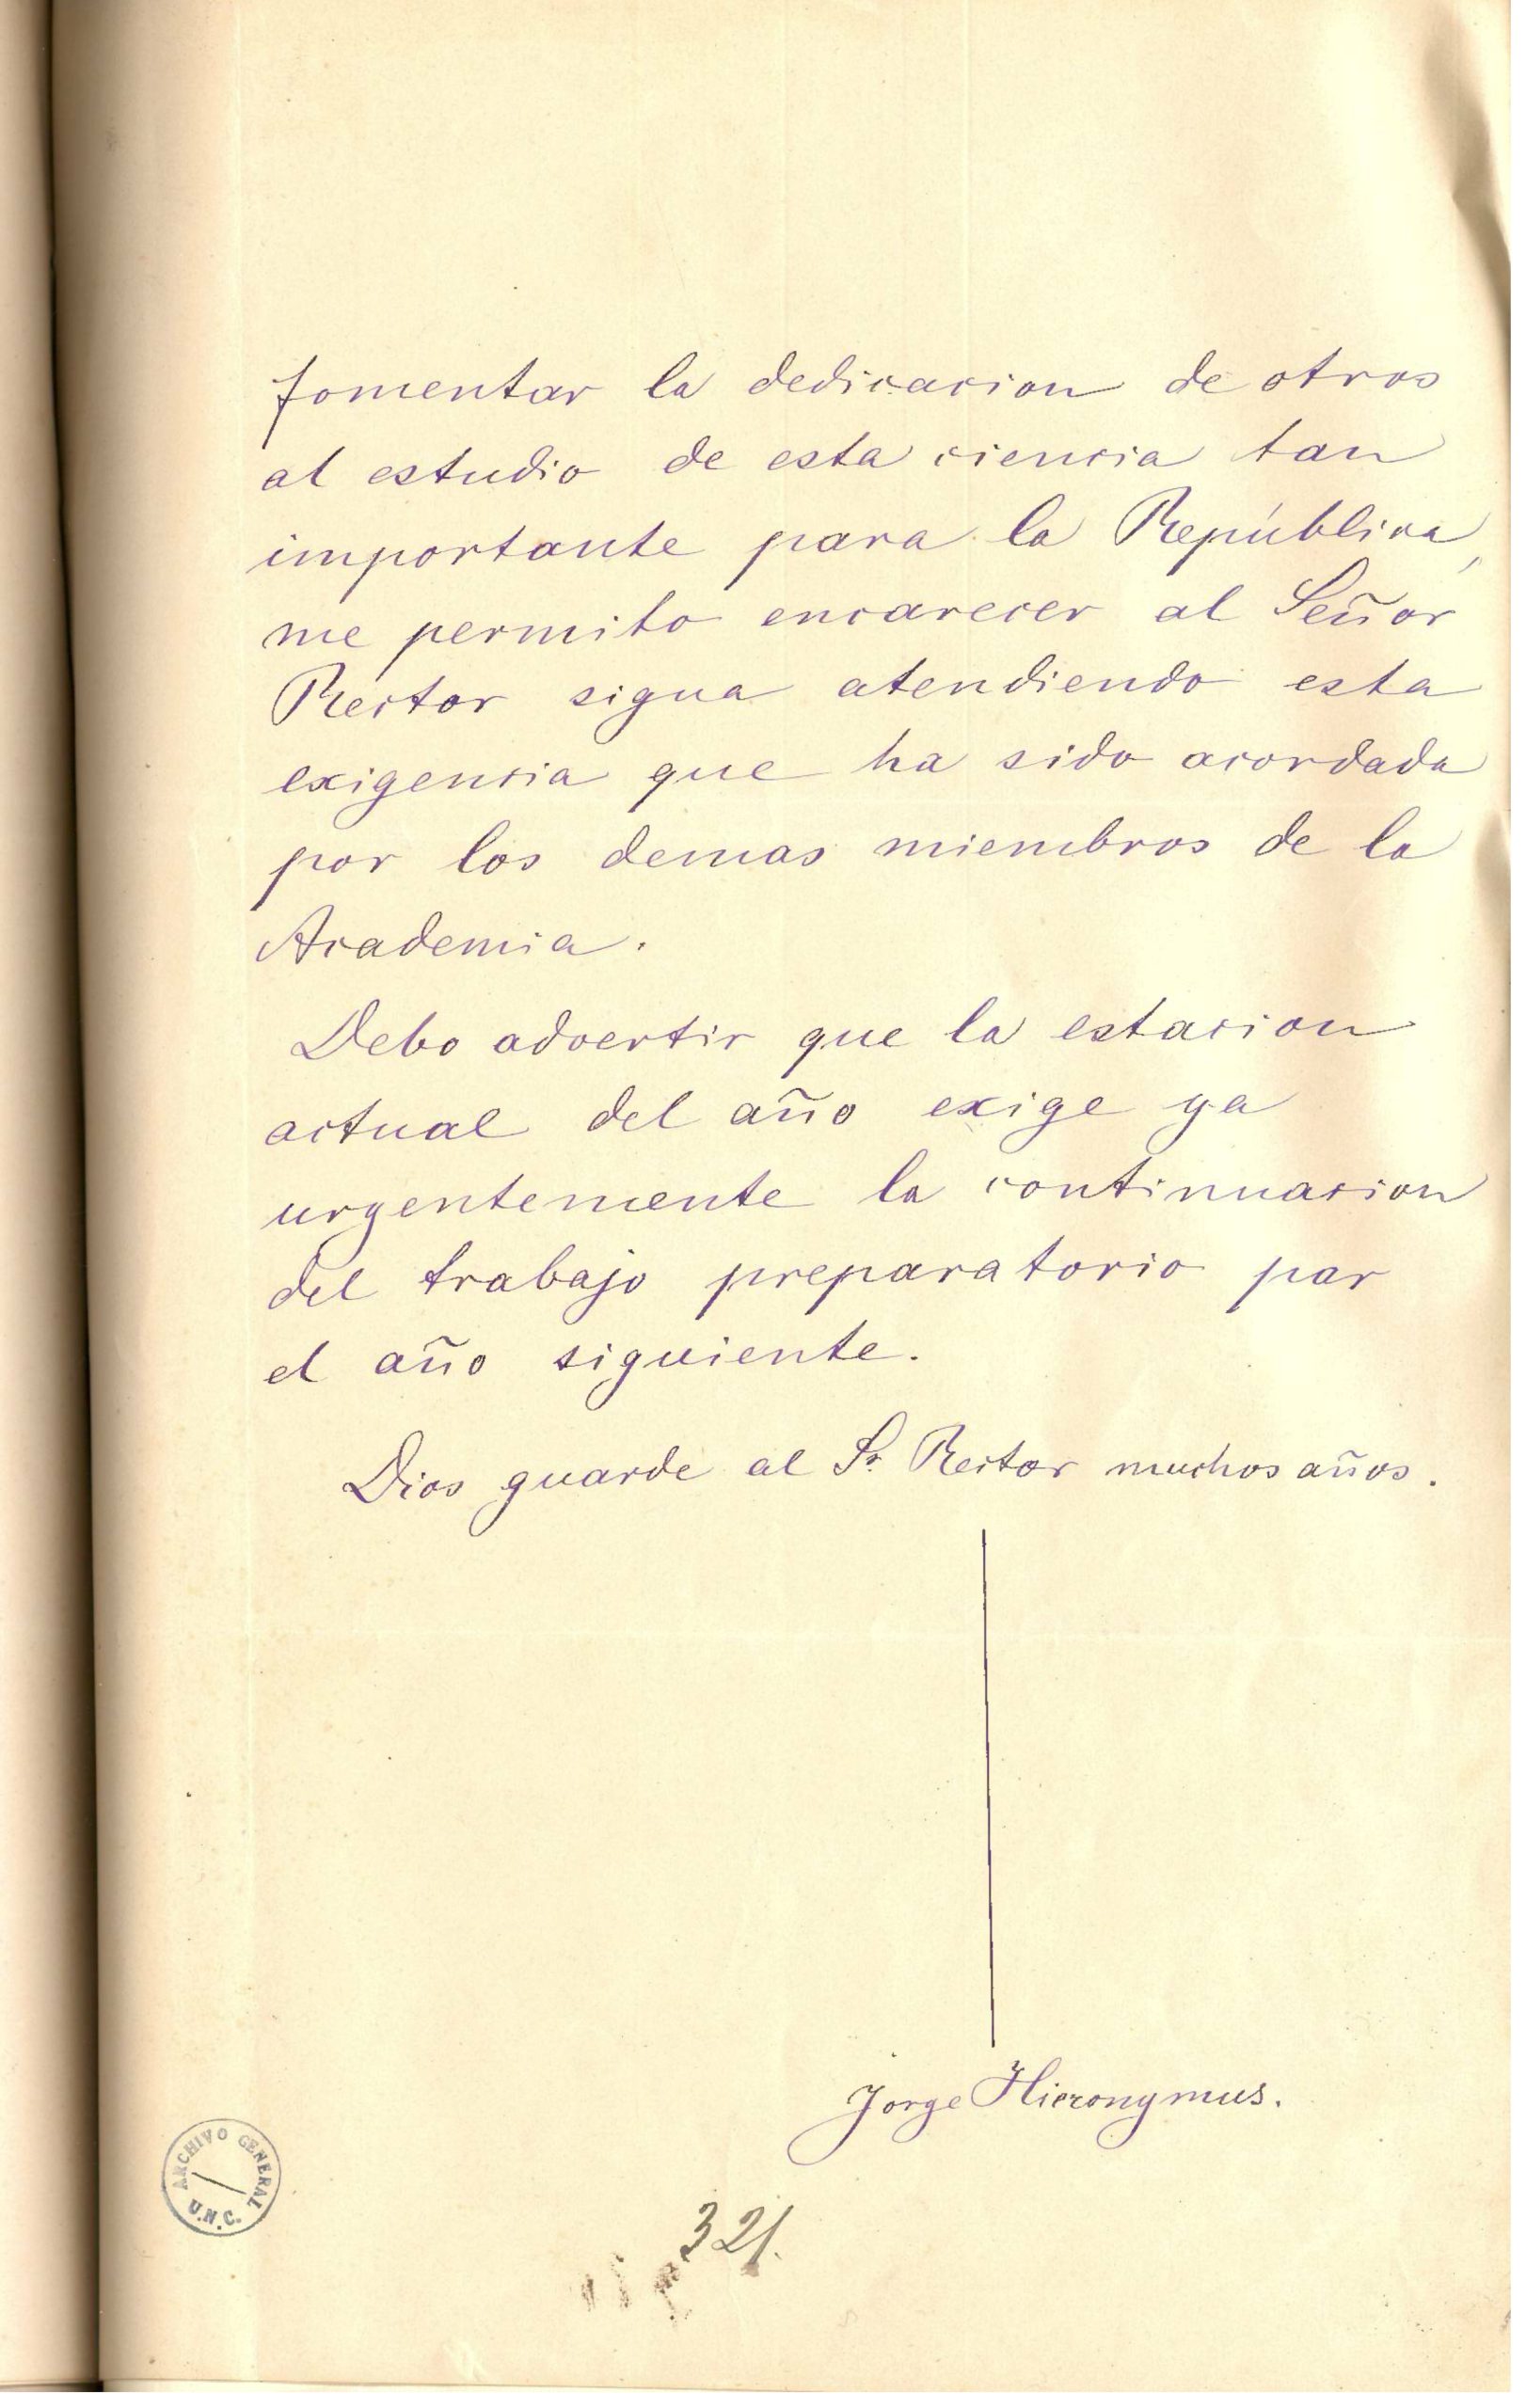 fomentar la dedicacion de otros
al estudio de esta ciencia tan
importante para la República,
me permito encarecer al Señor
Rector sigua atendiendo esta
exigencia que ha sido acordada
por los demas miembros de la
Academia.
Debo advertir que la estacion
actual del año exige ya
urgentemente la continuacion
del trabajo preparatorio par
el año siguiente.
Dios guarde al Sr. Rector muchos años.
Jorge Hieronymus.
ARCHIVO GENERAL
U.N.C.
321.